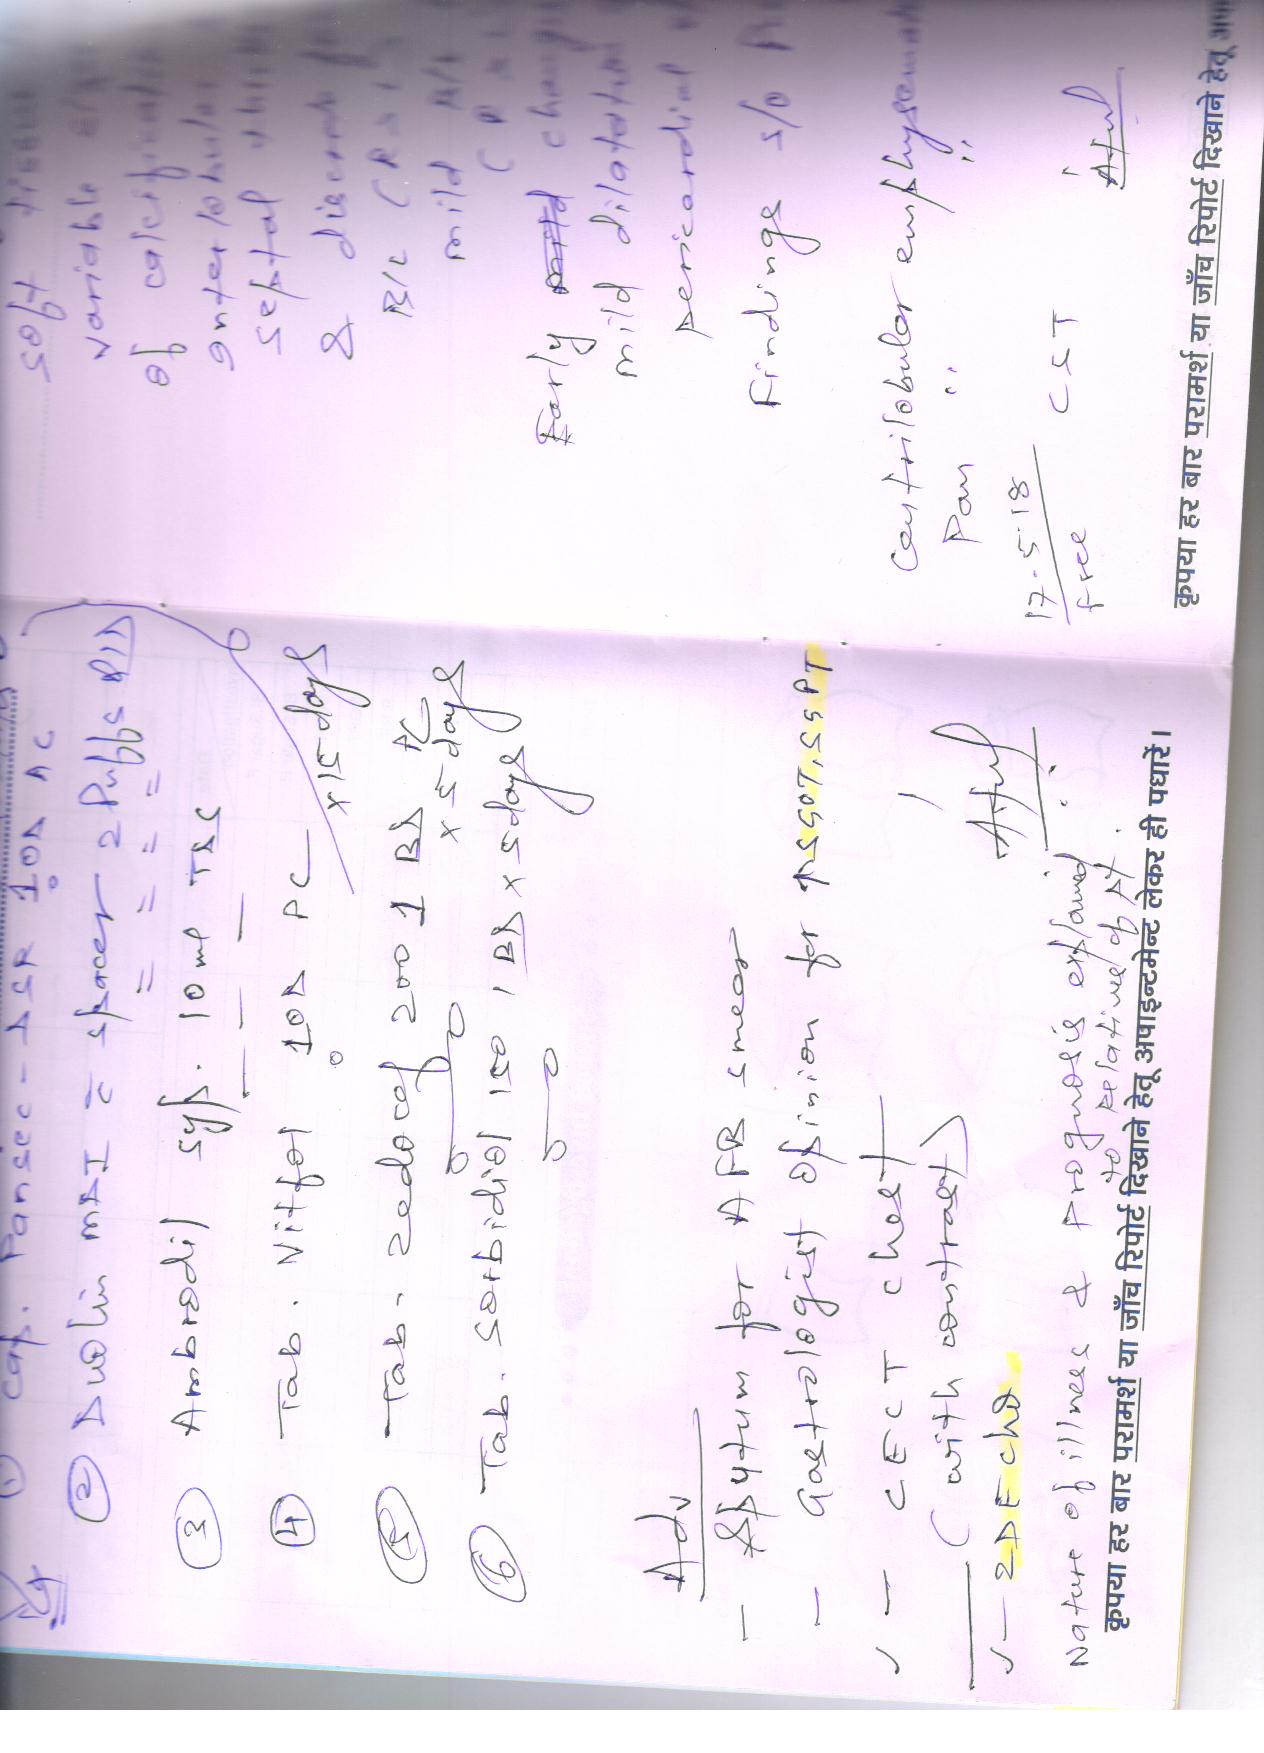 Rx
① Cap. Pansec-DSR 1OD AC
② Duolin MDI c̄ spacer 2 Puffs BID
③ Ambrodil Syp. 10ml TDS
④ Tab. Nitfol 1OD PC
x15 days
⑤ Tab. Zedocef 200 1 BD PC
x 5 days
⑥ Tab. Sorbidiol 150 1 BD x 5 days
Adv
- Sputum for AFB smear
- Gastrologist opinion for ↑SGOT, SGPT
✓ - CECT Chest
(with contrast)
✓ - 2D Echo
Atul
Nature of illness & Prognosis explained
to relatives of pt.
कृपया हर बार परामर्श या जाँच रिपोर्ट दिखाने हेतू अपाइन्टमेन्ट लेकर ही पधारें।
soft tissue
variable
of calcification
interlobular
septal
& discrete
B/L (R>L
mild
Early changes
mild dilatation
pericardial
Findings s/o
Centrilobular emphysema
Pan " "
17.5.18
free CST
Atul
कृपया हर बार परामर्श या जाँच रिपोर्ट दिखाने हेतू